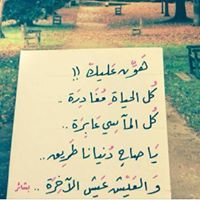 هَوِّن عَليكَ !!
كُل الحياة مُغادِرة ..
كُل المآسِي عابِرة ..
يَا صاحِ دُنيانا طَرِيق ..
وَ العَيْش عَيْش الآخِرَة ..
بشائر